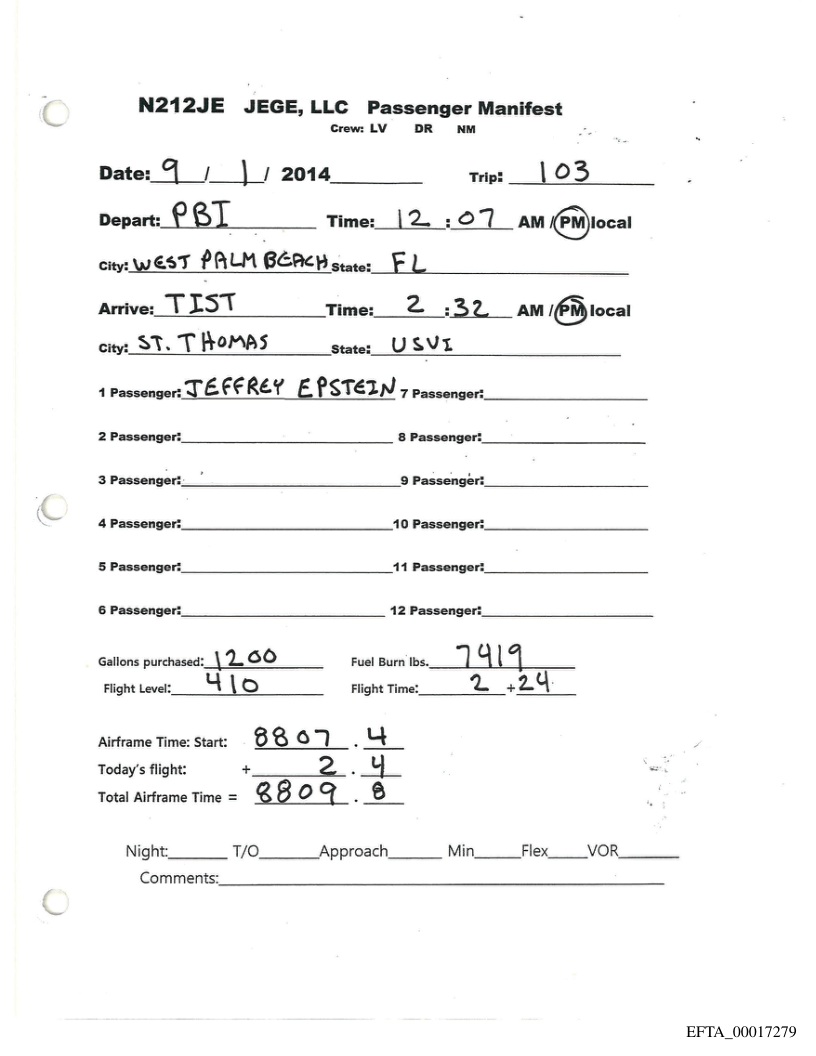 N212JE JEGE, LLC Passenger Manifest
Crew: LV DR NM
Date: 9 / 1 / 2014 Trip: 103
Depart: PBI Time: 12 : 07 AM / PM local
City: WEST PALM BEACH State: FL
Arrive: TIST Time: 2 : 32 AM / PM local
City: ST. THOMAS State: USVI
1 Passenger: JEFFREY EPSTEIN 7 Passenger:
2 Passenger: 8 Passenger:
3 Passenger: 9 Passenger:
4 Passenger: 10 Passenger:
5 Passenger: 11 Passenger:
6 Passenger: 12 Passenger:
Gallons purchased: 1200 Fuel Burn lbs. 7419
Flight Level: 410 Flight Time: 2 + 24
Airframe Time: Start: 8807 . 4
Today's flight: + 2 . 4
Total Airframe Time = 8809 . 8
Night: T/O Approach Min Flex VOR
Comments:
EFTA_00017279